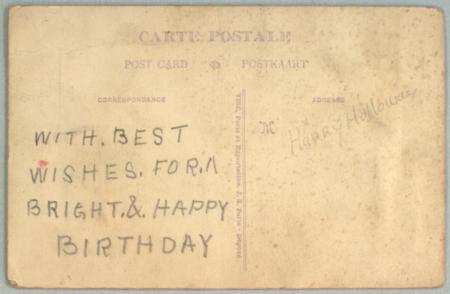 CARTE POSTALE
POST CARD POSTKAART
CORRESPONDANCE
ADRESSE
WITH. BEST
WISHES. FOR. A
BRIGHT. &. HAPPY
BIRTHDAY
M
Harry